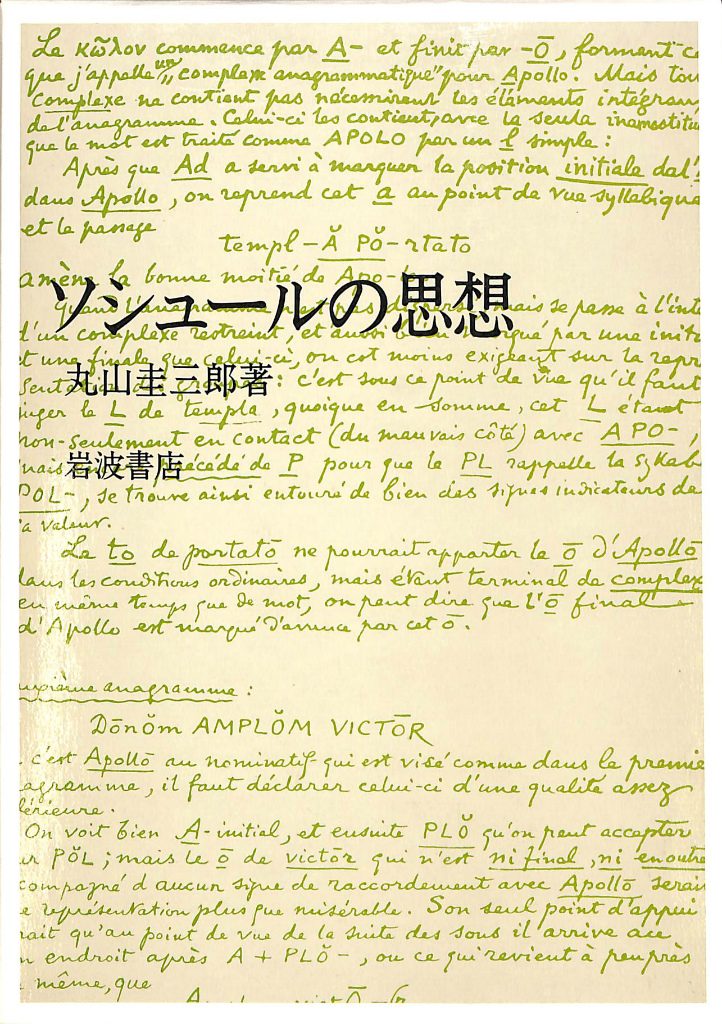 Le κῶλον commence par A- et finit par -Ō, formant
que j'appelle un "complexe anagrammatique" pour Apollo. Mais tou
complexe ne contient pas nécessairement les éléments intégran
de l'anagramme. Celui-ci les contient, avec la seule
que le mot est traité comme APOLO par un l simple :
Après que Ad a servi à marquer la position initiale de l'
dans Apollo, on reprend cet a au point de vue syllabique
et le passage
templ-Ă PŎ-rtato
amène la bonne moitié de Apo-
ソシュールの思想
mais se passe à l'inté
d'un complexe restreint, et aussi par une
et une finale que celui-ci, on est moins exigeant sur la
丸山圭三郎著
: c'est sous ce point de vue qu'il faut
juger le L de templa, quoique en somme, cet L étant
non-seulement en contact (du mauvais côté) avec APO-,
岩波書店
précédé de P pour que le PL rappelle la syllab
POL-, se trouve ainsi entouré de bien des signes indicateurs de
sa valeur.
Le to de portatō ne pourrait apporter le ō d'Apollō
dans les conditions ordinaires, mais étant terminal de complexe
en même temps que de mot, on peut dire que l'ō final
d'Apollo est marqué d'avance par cet ō.
anagramme :
Dōnŏm AMPLŎM VICTŌR
c'est Apollō au nominatif qui est visé comme dans le premie
agramme, il faut déclarer celui-ci d'une qualité assez
férieure.
On voit bien A- initial, et ensuite PLŎ qu'on peut accepter
PŎL ; mais le ō de victōr qui n'est ni final, ni en outre
compagné d'aucun signe de raccordement avec Apollō serai
représentation plus que misérable. Son seul point d'appui
rait qu'au point de vue de la suite des sons il arrive
n endroit après A + PLŎ-, ou ce qui revient à peu près
même, que